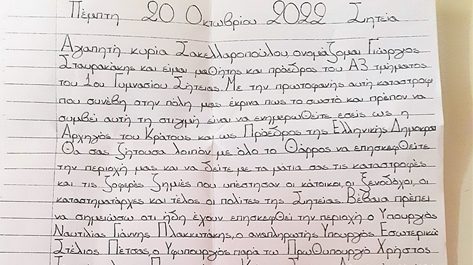 Πέμπτη 20 Οκτωβρίου 2022 Σητεία
Αγαπητή κυρία Σακελλαροπούλου, ονομάζομαι Γιώργιος
Σταυρακάκης και είμαι μαθητής και πρόεδρος του Α3 τμήματος
του 1ου Γυμνασίου Σητείας. Με την πρωτοφανής αυτή καταστροφή
που συνέβη στην πόλη μας έκρινα πως το σωστό και πρέπον να
συμβεί αυτή τη στιγμή είναι να ενημερωθείτε εσείς ως η
Αρχηγός του Κράτους και ως Πρόεδρος της Ελληνικής Δημοκρα
Θα σας ζητούσα λοιπόν με όλο το θάρρος να επισκεφθείτε
την περιοχή μας και να δείτε με τα μάτια σας τις καταστροφές
και τις ζοφερές ζημιές που υπέστησαν οι κάτοικοι, οι ξενοδόχοι, οι
καταστηματάρχες και τέλος οι πολίτες της Σητείας. Βέβαια πρέπει
να σημειώσω ότι ήδη έχουν επισκεφθεί την περιοχή ο Υπουργός
Ναυτιλίας Γιάννης Πλακιωτάκης, ο αναπληρωτής Υπουργός Εσωτερικών
Στέλιος Πέτσας, ο Υφυπουργός παρά τω Πρωθυπουργό Χρήστος